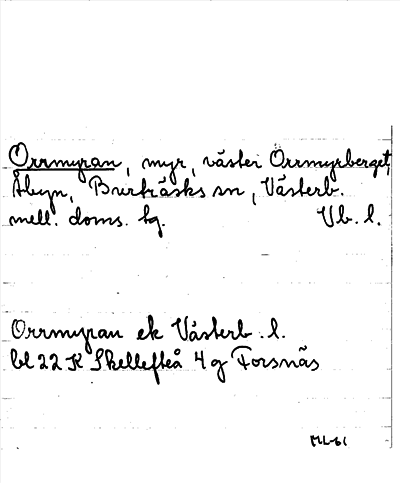 Orrmyran, myr, väster Orrmyrberget,
Åbyn, Burträsks sn, Västerb.
mell. doms. hg. Vb. l.
Orrmyran ek Västerb. l.
bl 22 K Skellefteå 4 g Forsnäs
ML-61